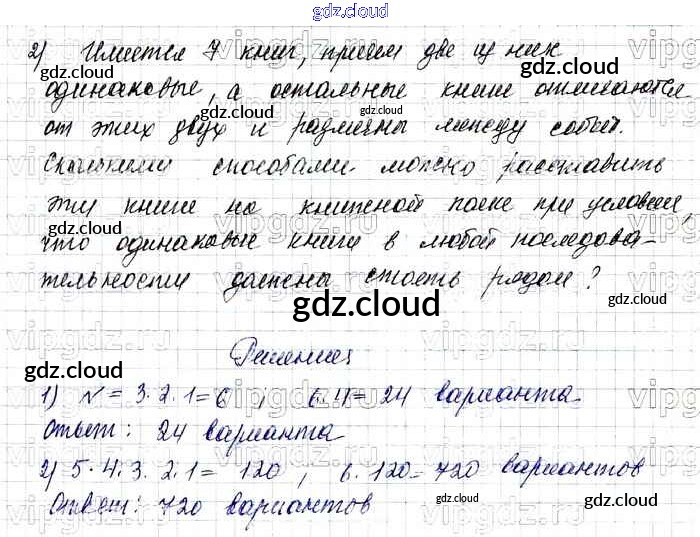 gdz.cloud
2) Имеется 7 книг, причем две из них
одинаковые, а остальные книги отличаются
от этих двух и различны между собой.
Сколькими способами можно расставить
эти книги на книжной полке при условии,
что одинаковые книги в любой последова-
тельности должны стоять рядом?
Решения
1) N = 3·2·1=6, 6·4=24 варианта
Ответ: 24 варианта
2) 5·4·3·2·1= 120, 6·120=720 вариантов
Ответ: 720 вариантов